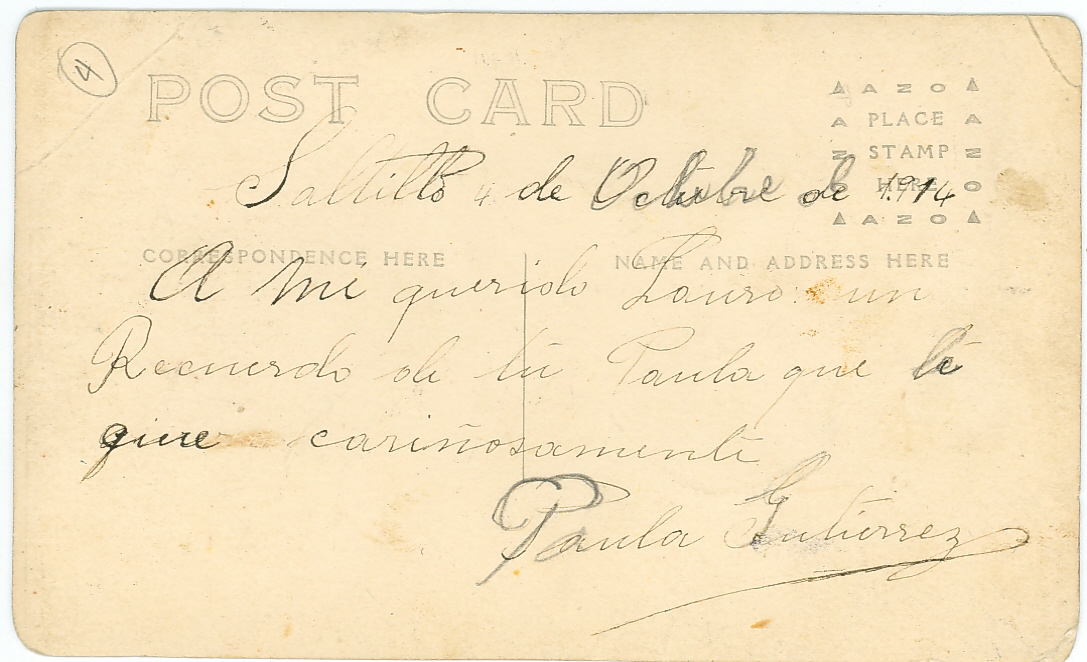 4
POST CARD
AZO
A PLACE A
N STAMP N
O HERE O
AZO
Saltillo 4 de Octubre de 1914
CORRESPONDENCE HERE
NAME AND ADDRESS HERE
A mi querido Lauro un
Recuerdo de tú Paula que te
quire cariñosamente
Paula Gutierrez